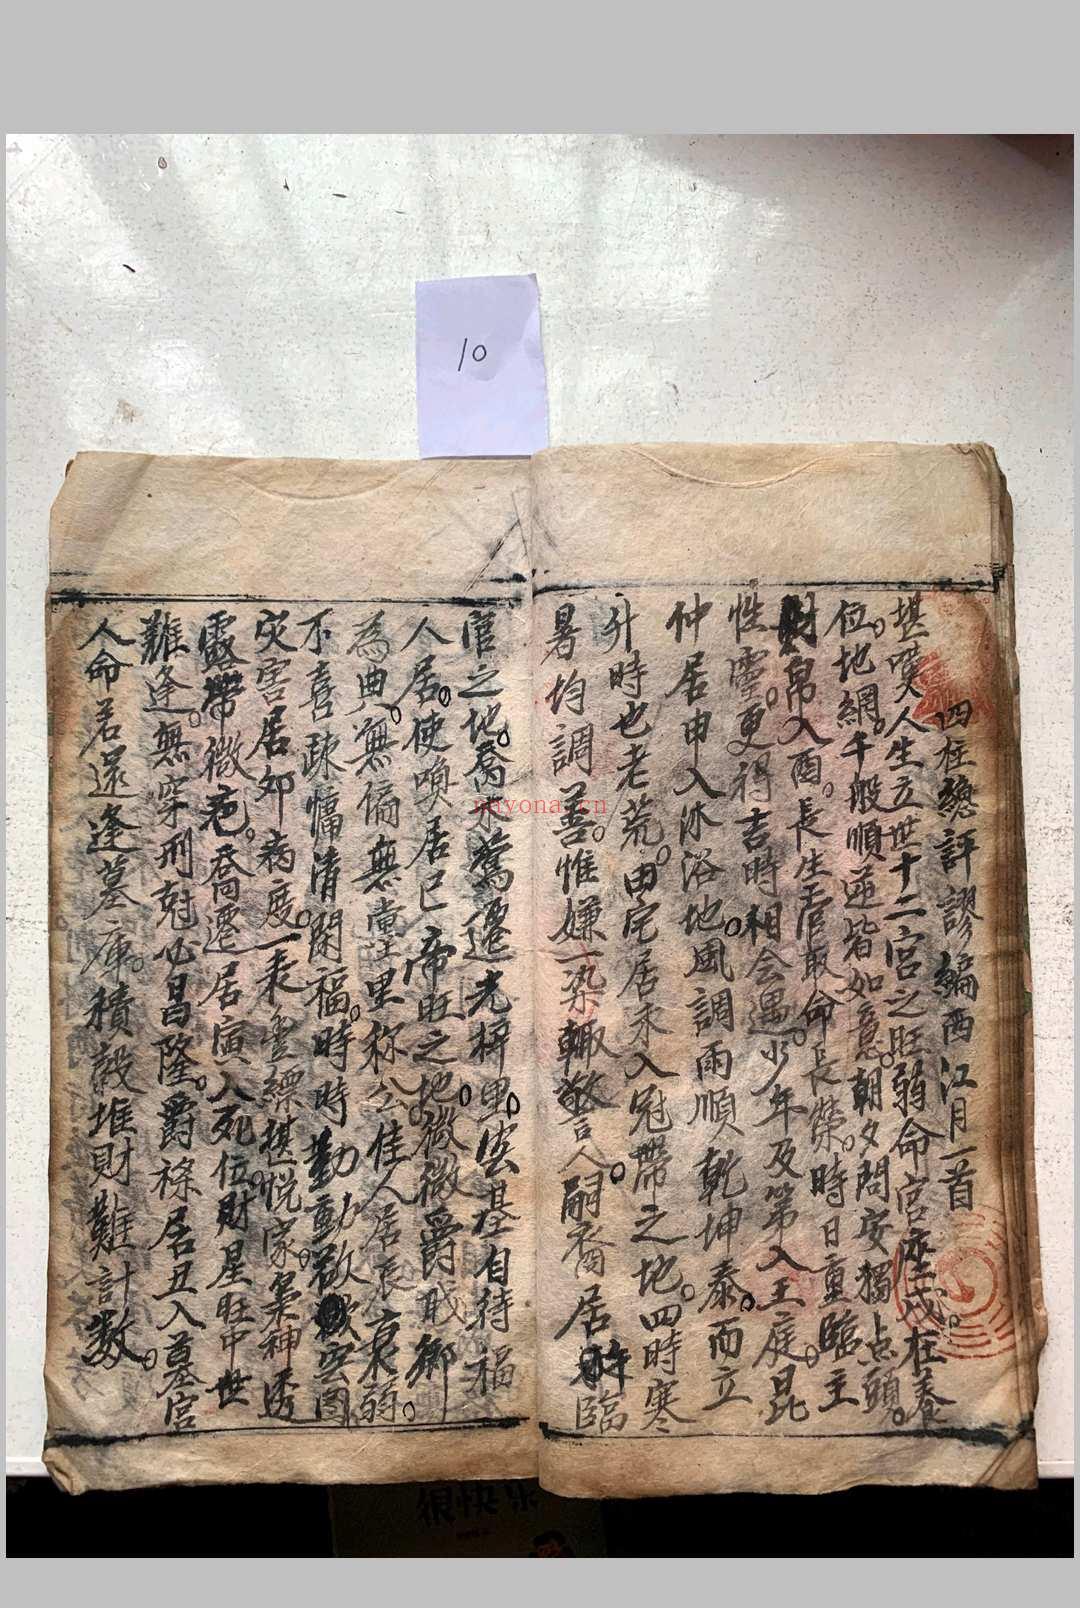 10
四柱總評謬編西江月一首
堪嘆人生立世十二宮之旺弱命宮座戌在養
位地網千般順逆皆如意朝夕問安獨点頭
財帛入酉長生官取命長榮時日重臨主
性靈更得吉時相会遇少年及第入王庭昆
仲居申入沐浴地風調雨順乾坤泰而立
升時也老荒田宅居未入冠帶之地四時寒
暑均調善惟嫌一染輙驚人嗣裔居 臨
官之地喬木鶯遷光梓里宏基自待福
人居使喚居巳帝旺之地微微爵 鄉
為典無偏無黨里称公佳人居辰衰弱
不喜疎慵清閑福時時勤動欲 宏圖
災害居卯病度一表豐 堪悦家梟神透
露帶微疤喬遷居寅入死位財星旺中世
難逢無穿刑尅必昌隆爵祿居丑入墓宮
人命若還逢墓庫積穀堆財難計數
nayona.cn
很快乐